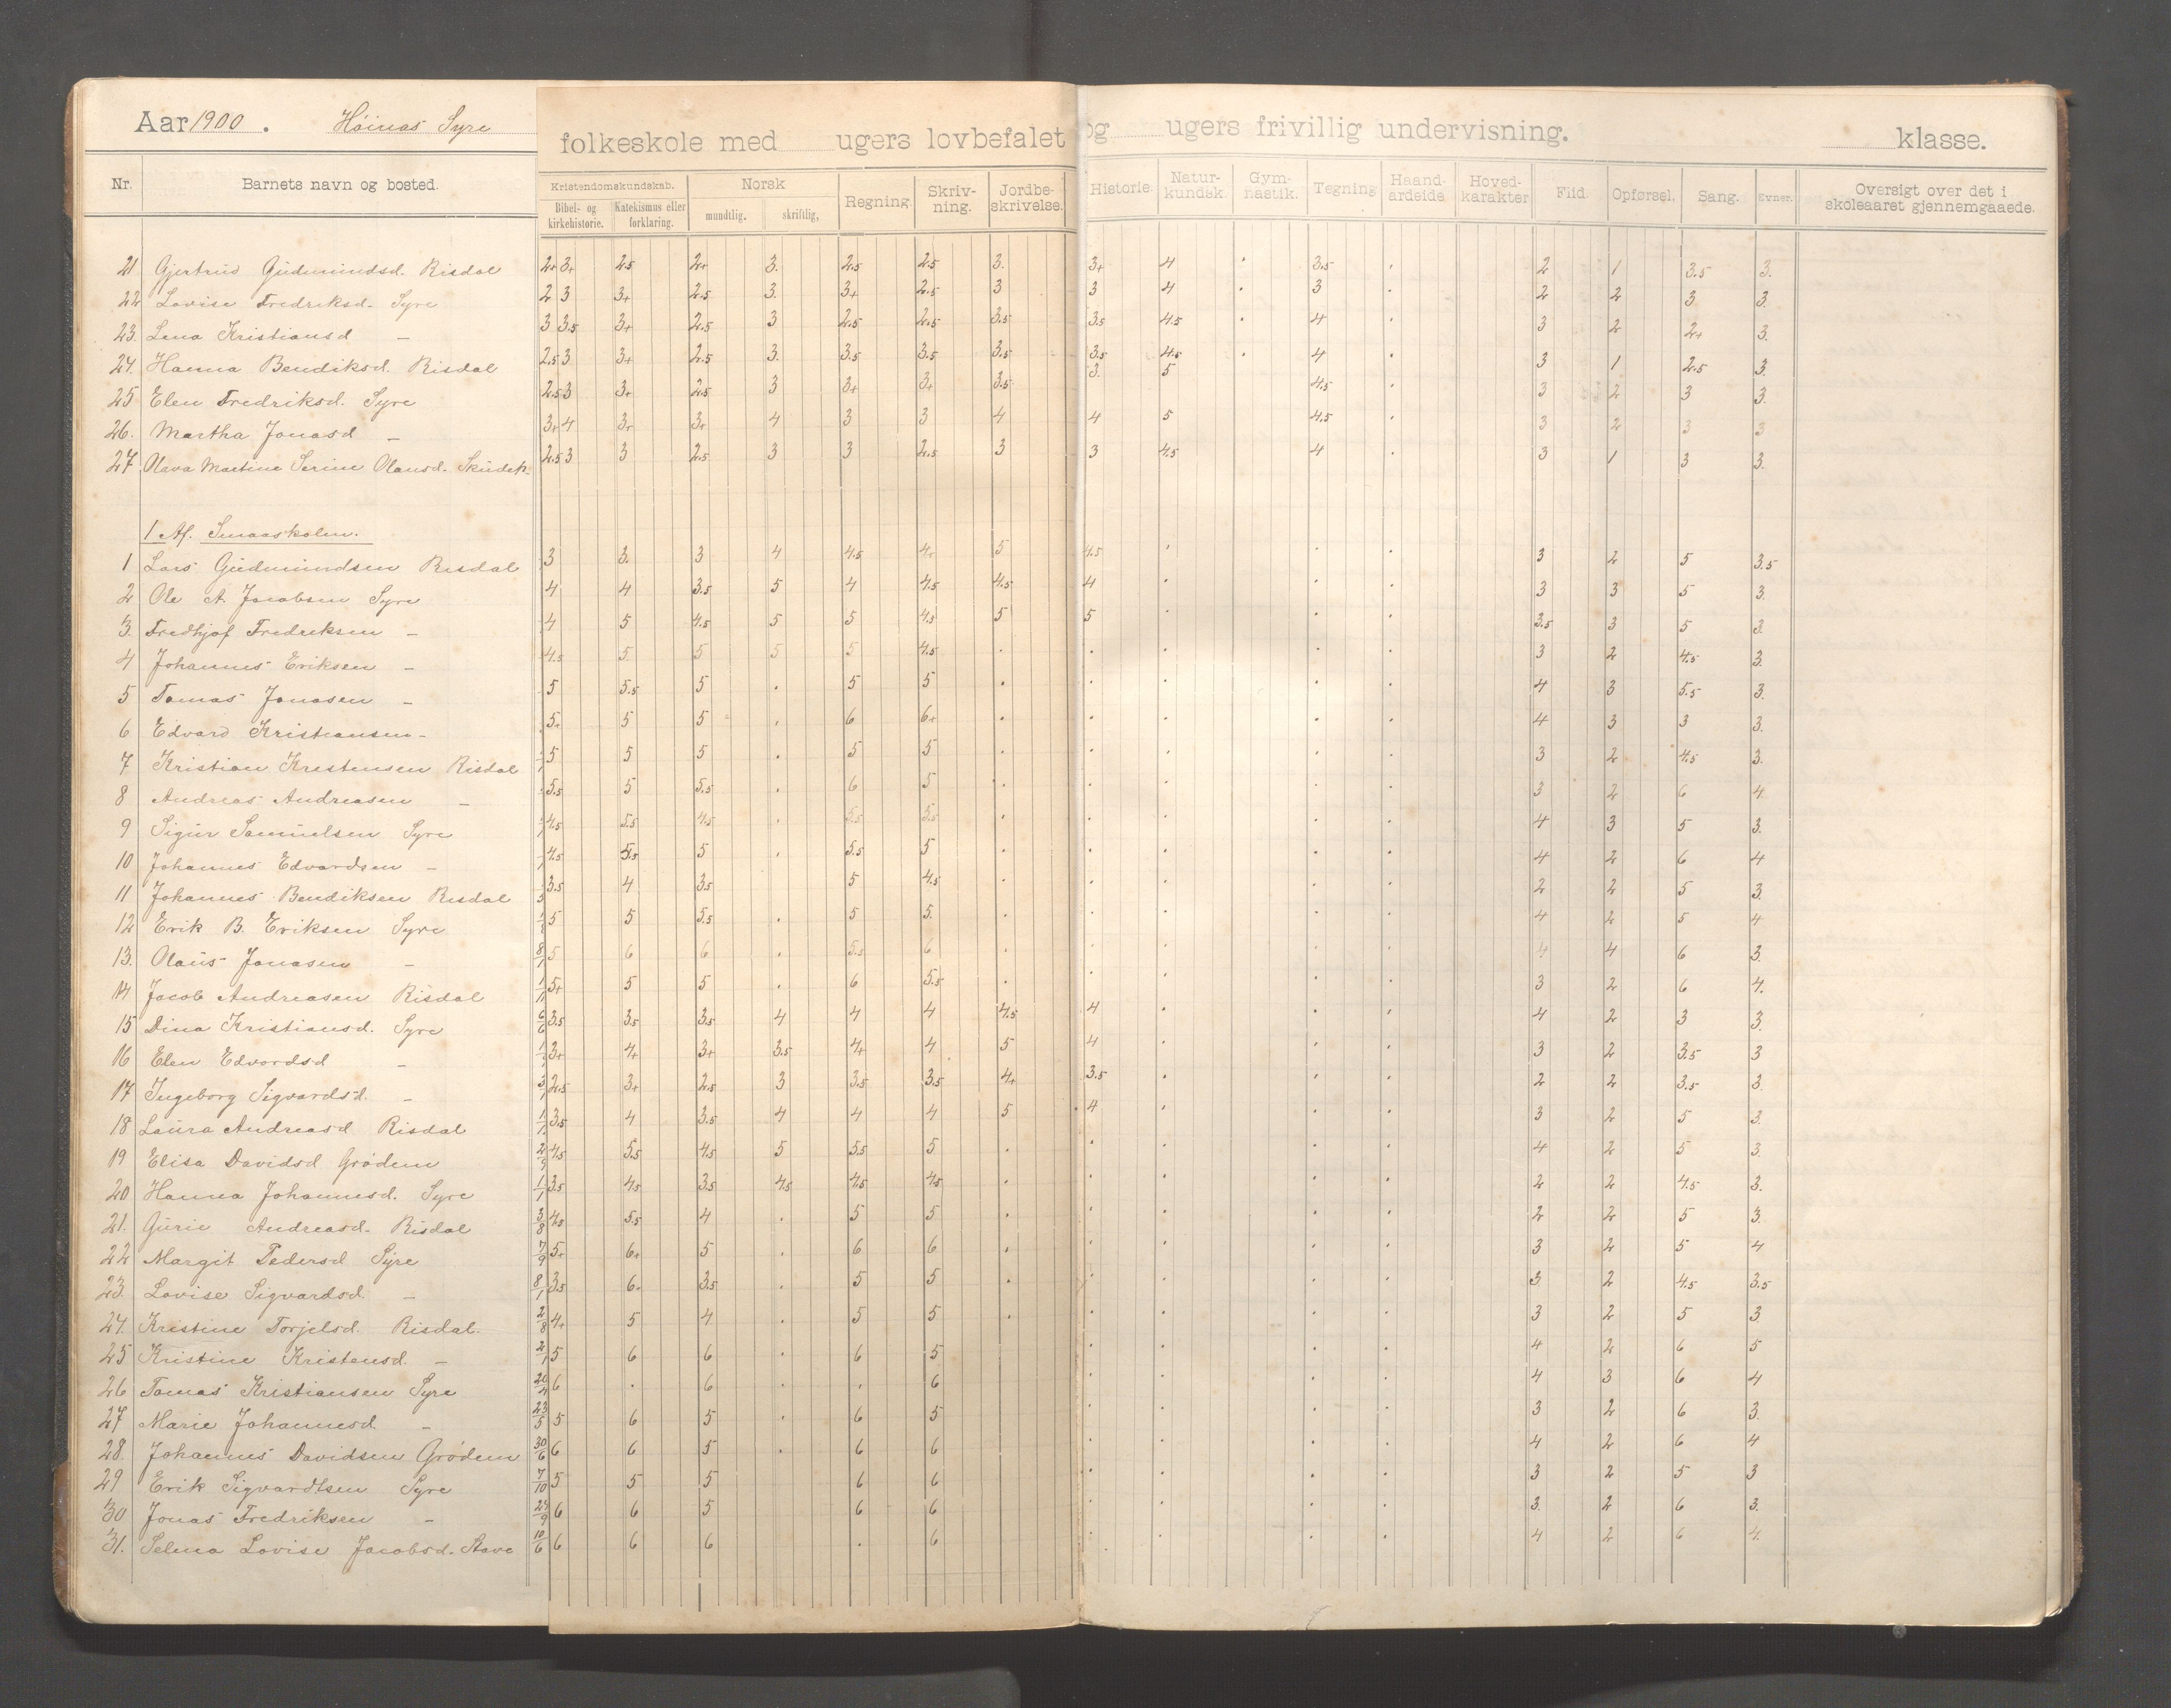 Aar 1900. Høines Syre folkeskole med ugers lovbefalet og ugers frivillig undervisning. klasse.
Nr. Barnets navn og bosted. Kristendomskundskab. Bibel- og kirkehistorie. Katekismus eller forklaring. Norsk mundtlig. skriftlig, Regning. Skriv-ning. Jordbe-skrivelse. Historie. Natur-kundsk. Gym-nastik. Tegning Haand-arbeide Hoved-karakter Flid. Opførsel. Sang. Evner. Oversigt over det i skoleaaret gjennemgaaede.
21 Gjertrud Gudmundsd. Risdal 2+ 3+ 2.5 2+ 3. 2.5 2.5 3. 3+ 4 . 3.5 . 2 1 3.5 3.
22 Lovise Fredriksd. Syre 2 3 3+ 2.5 3. 3+ 2.5 3 3 4 . 3 . 2 2 3 3.
23. Lena Kristiansd – 3 3.5 3+ 2.5 3 2.5 2.5 3.5 3.5 4.5 . 4 . 3 2 2+ 3.
24. Hanna Bendiksd. Risdal 2.5 3 3+ 2.5 3. 3.5 3.5 3.5 3.5 4.5 . 4 . 3 1 2.5 3.
25 Elen Fredriksd. Syre 2.5 3 3+ 2.5 3 3+ 3+ 3.5 3. 5 4.5 . 3 2 3 3.
26. Martha Jonasd – 3+ 4 3+ 3+ 4 3 3 4 4 5 4.5 . 3 2 3 3
27. Martine Serine Olausd. 2.5 3 3 2.5 3 3 2.5 3 3 4.5 4 . 3 1 3 3.
1 Af. Smaaskolen.
1 Lars Gudmundsen Risdal 3 3. 3 4 4.5 4+ 5 4.5 . . . 3 2 5 3.5
2 Ole A. Jacobsen Syre 4 4 3.5 5 4 4.5 4.5 4 . . . 3 3 5 3.
3. Fredhjof Fredriksen – 4 5 4.5 5 5 4.5 5 5 . . . 3.5 3 5 3.
4 Johannes Eriksen – 4.5 5 5 5 5 4.5 . . . . . 3 2 4.5 3.
5 Tomas Jonasen – 5 5.5 5 . 5 5 . . . . . 4 3 5.5 3.
6 Edvard Kristiansen – 5+ 5 5 . 6 6+ . . . . . 4 3 3 3.
7 Kristian Kristensen Risdal 5 5 5 . 5 5 . . . . . 3 2 4.5 3.
8 Andreas Andreasen – 5.5 5 5.5 . 6 5 . . . . . 3 2 6 4
9 Sigur Samuelsen Syre 4.5 5.5 4.5 . 5.5 5.5 . . . . . 4 3 5 3.
10 Johannes Edvardsen – 4.5 5.5 5 . 5.5 5 . . . . . 4 2 6 4
11 Johannes Bendiksen Risdal 3.5 4 3.5 5 4.5 . . . . . 2 2 5 3.
12 Erik B. Eriksen Syre 5 5 5.5 . 5 5. . . . . . 4 2 5 4
13. Olaus Jonasen – 8/1 5 6 6 . 5.5 6 . . . . . 4 4 6 3.
14 Jacob Andreasen Risdal 1/11 5+ 5 5 . 6 5.5 . . . . . 3 2 6 4.
15 Dina Kristiansd. Syre 6/6 3.5 3.5 3.5 4 4 4 4.5 4 . . . 4 2 3 3.
16 Elen Edvardsd – 3+ 4+ 3+ 3.5 4+ 4 5 4 . . . 3 2 3.5 3
17 Ingeborg Sigvardsd. – 3/1 2.5 3+ 2.5 3 3.5 3.5 4+ 3.5 . . . 2 2 3.5 3.
18 Laura Andreasd Risdal 1/1 3.5 4 3.5 4 4 4 5 4 . . . 3 2 5 3.
19 Elisa Davidsd Grødem 2/9 4.5 5.5 4.5 5 5.5 5 . . . . . 4 2 5 3.
20 Hanna Johannesd. Syre 1/1 3.5 4.5 3.5 4.5 4.5 4.5 . . . . . 2 2 4.5 3.
21. Gurie Andreasd. Risdal 3/8 4.5 5.5 4 . 5 5 . . . . . 2 2 5 3.
22 Margit Pedersd Syre 7/9 5+ 6+ 5 . 6 6 . . . . . 3 2 5 4
23. Lovise Sigvardsd. – 8/1 3.5 6. 3.5 . 5 5 . . . . . 3 2 4.5 3.5
24. Kristine Torjelsd. Risdal. 2/8 4+ 5 4 . 5 5 . . . . . 3 2 5 3.
25 Kristine Kristensd. – 2/1 5 6 6 . 6 5 . . . . 4 2 6 5
26 Tomas Kristiansen Syre 20/4 6 . 6 . . 6 . . . . 4 3 6 4
27 Marie Johannesd. – 23/5 5 6 5 . 6 5 . . . . 3 2 6 3.
28. Johannes Davidsen Grødem 30/6 6 6 5 . 6 6 . . . . 4 2 6 4
29 Erik Sigvardtsen Syre 7/10 5 5 5 6 6 . . . . 3 2 5 3
30 Jonas Fredriksen – 29/9 6 6 5 6 6 . . . . 3. 2 6 3.
31. Selma Lovise Jacobsd. 10/6 6 6 6 . 6 . . . . 4 2 6 4.